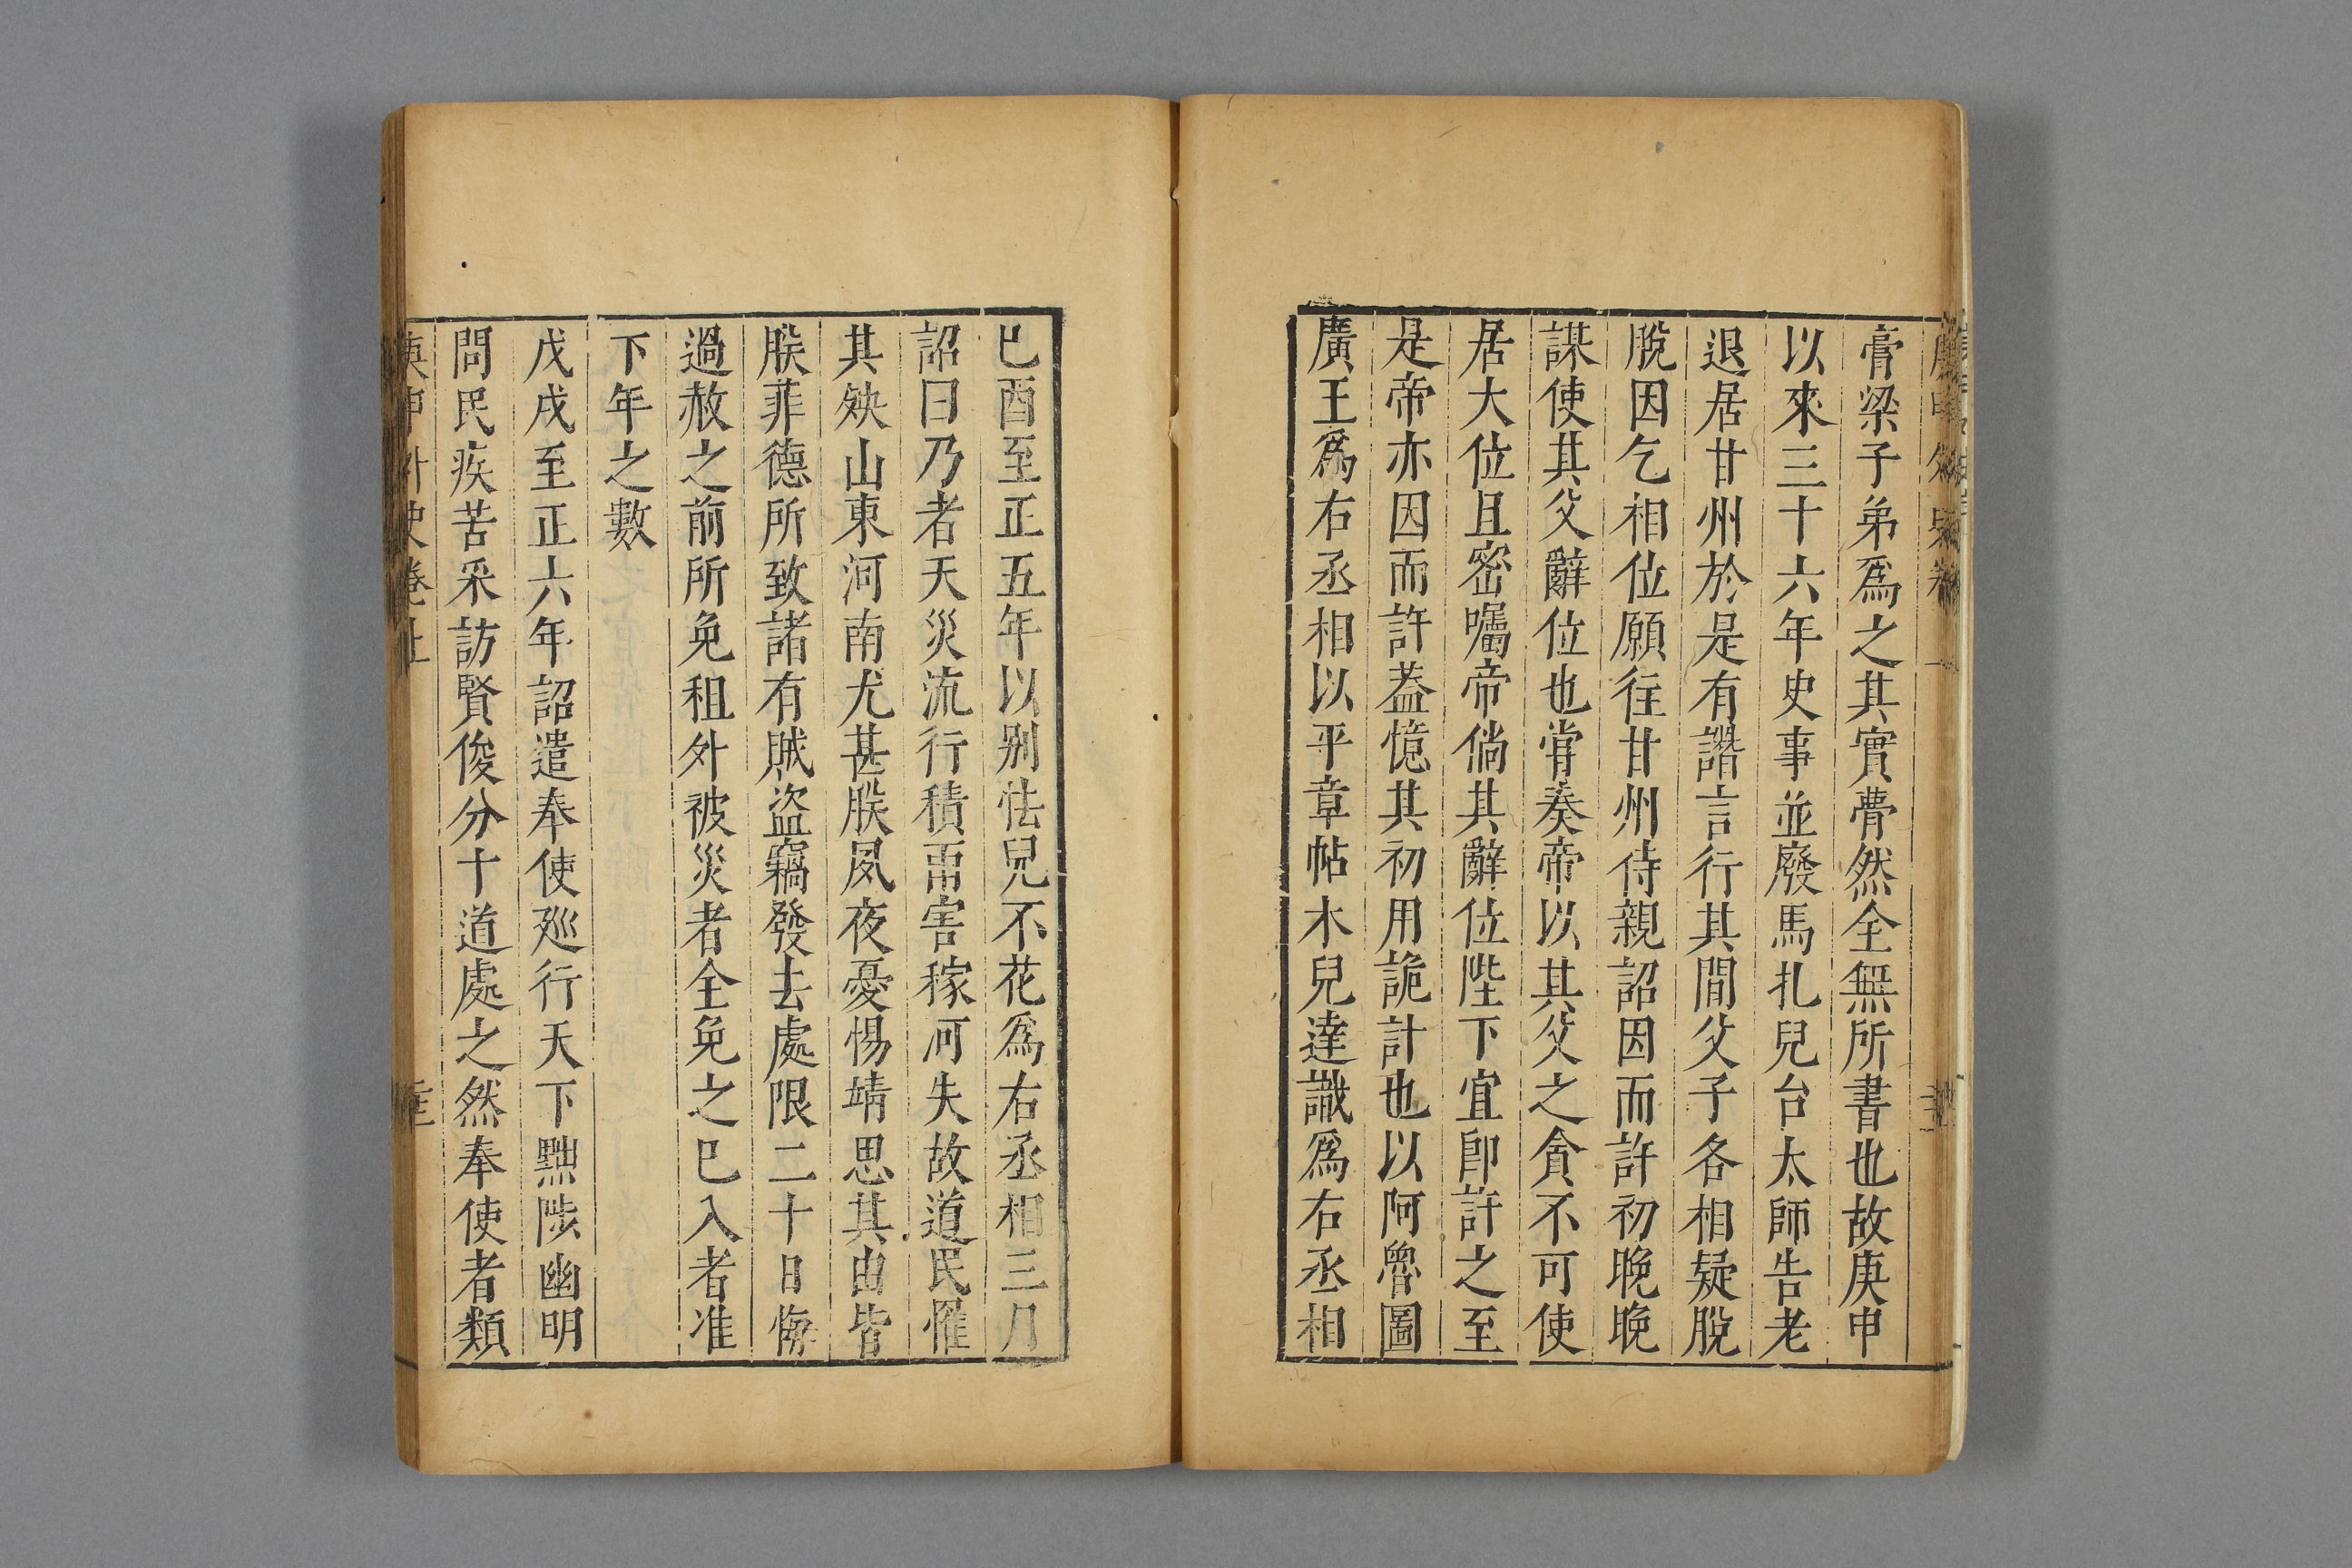 膏粱子弟爲之其實瞢然全無所書也故庚申
以來三十六年史事並廢馬扎兒台太師告老
退居甘州於是有譖言行其間父子各相疑脫
脫因乞相位願徃甘州侍親詔因而許初晚晚
謀使其父辭位也甞奏帝以其父之貪不可使
居大位且密囑帝倘其辭位陛下宜卽許之至
是帝亦因而許葢憶其初用詭計也以阿魯圖
廣王爲右丞相以平章帖木兒達識爲右丞相
巳酉至正五年以别怯兒不花爲右丞相三月
詔曰乃者天災流行積雨害稼河失故道民罹
其殃山東河南尤甚朕夙夜憂惕靖思其由皆
朕菲德所致諸有賊盜竊發去處限二十日悔
過赦之前所免租外被災者全免之巳入者准
下年之數
戊戌至正六年詔遣奉使廵行天下黜陟幽明
問民疾苦采訪賢俊分十道處之然奉使者類
庚申外史卷上